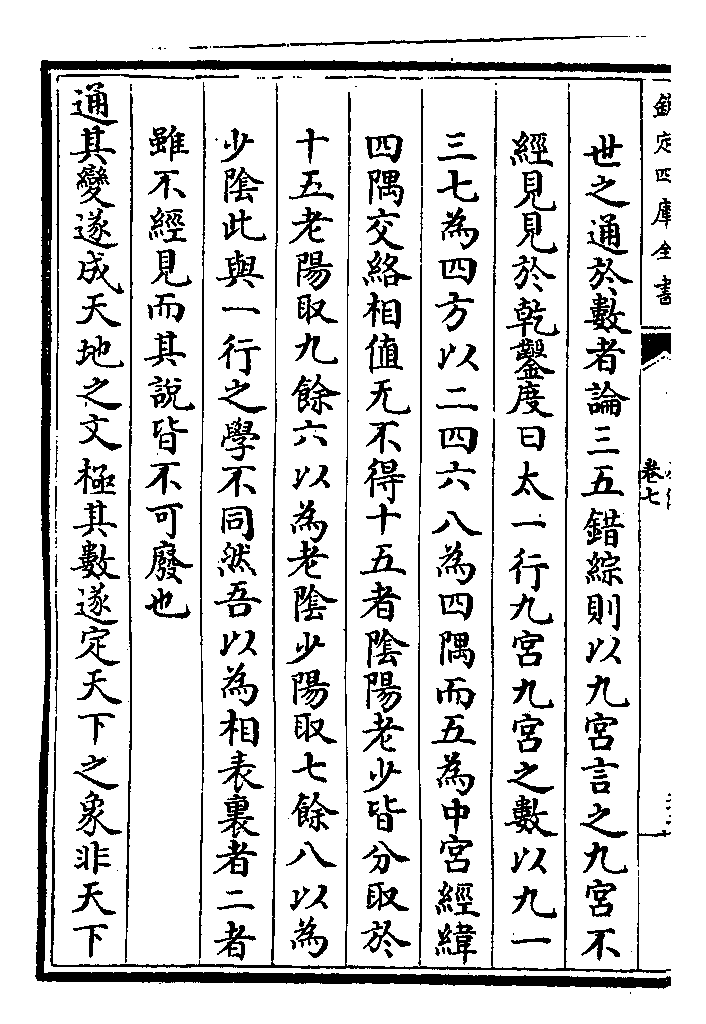 欽定四庫全書
卷七
世之通於數者論三五錯綜則以九宮言之九宮不
經見見於乾鑿度曰太一行九宮九宮之數以九一
三七為四方以二四六八為四隅而五為中宮經緯
四隅交絡相值无不得十五者隂陽老少皆分取於
十五老陽取九餘六以為老隂少陽取七餘八以為
少隂此與一行之學不同然吾以為相表裏者二者
雖不經見而其說皆不可廢也
通其變遂成天地之文極其數遂定天下之象非天下